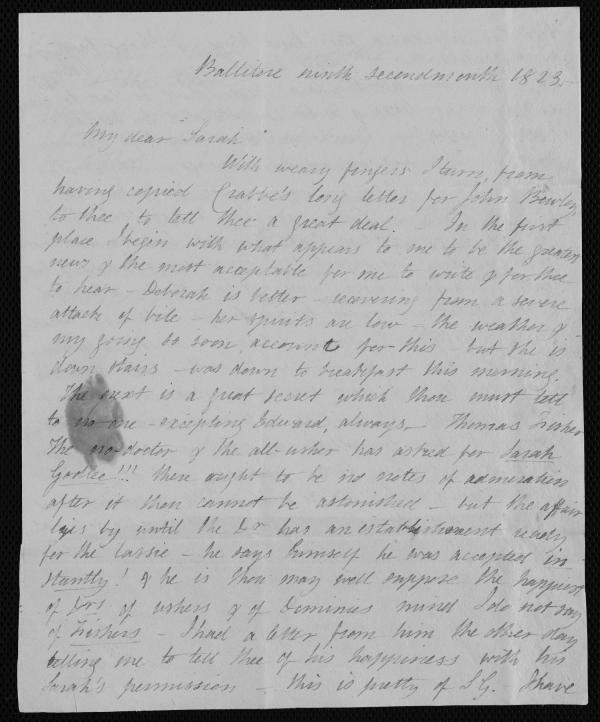 Ballitore ninth secondmonth 1823.-
My dear Sarah
With weary fingers I turn, from
having copied Crabbe's long letter for John Bewley,
to thee to tell thee a great deal. - In the first
place I begin with what appears to me to be the greatest
news & the most acceptable for me to write & for thee
to hear - Deborah is better - recovering from a severe
attack of bile - her spirits are low - the weather &
my going so soon account for this - but she is
down stairs - was down to breakfast this morning.
The next is a great secret which thou must tell
to no one - excepting Edward, always - Thomas Fisher
The no-doctor & the all-usher has asked for Sarah
Godlee!!! there ought to be no notes of admiration
after it thou cannot be astonished - but the affair
lyes by until the Dr has an establishment ready
for the lassie - he says himself he was accepted in
stantly! & he is thou may well suppose the happiest
of Drs of ushers & of Dominies mind I do not say
of Fishers - I had a letter from him the other day
telling me to tell thee of his happiness with his
Sarah's permission - this is pretty of S G. - I have